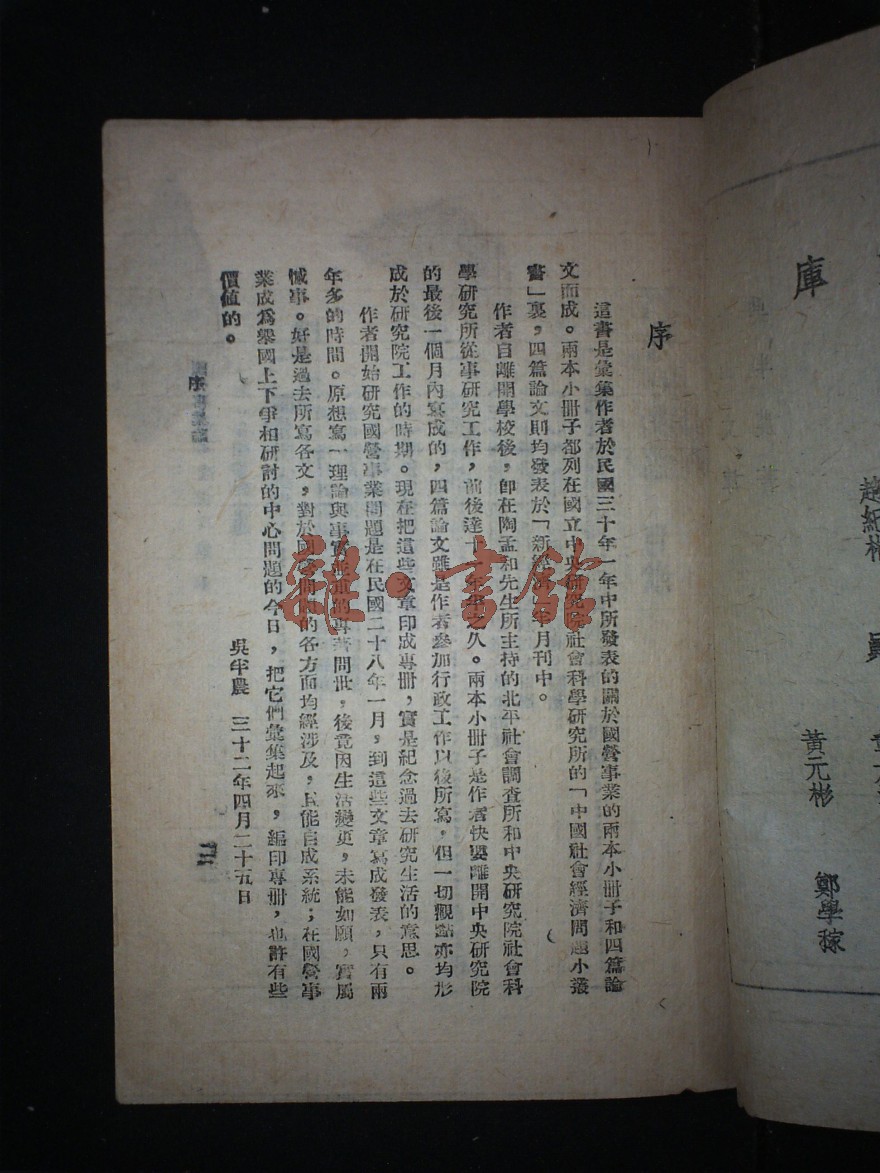 序
這書是彙集作者於民國三十年一年中所發表的關於國營事業的兩本小冊子和四篇論
文而成。兩本小冊子都列在國立中央研究院社會科學研究所的「中國社會經濟問題小叢
書」裏，四篇論文則均發表於「新經濟」半月刊中。
作者自離開學校後，卽在陶孟和先生所主持的北平社會調查所和中央研究院社會科
學研究所從事研究工作，前後達十一年半之久。兩本小冊子是作者快要離開中央研究院
的最後一個月內寫成的，四篇論文雖是作者參加行政工作以後所寫，但一切觀點亦均形
成於研究院工作的時期。現在把這些文章印成專冊，實是紀念過去研究生活的意思。
作者開始研究國營事業問題是在民國二十八年一月，到這些文章寫成發表，只有兩
年多的時間。原想寫一理論與事實並重的專著問世，後竟因生活變更，未能如願，實屬
憾事。好是過去所寫各文，對於國營問題的各方面均經涉及，且能自成系統；在國營事
業成爲舉國上下爭相研討的中心問題的今日，把它們彙集起來，編印專冊，也許有些
價値的。
吳半農　三十二年四月二十五日
序
庫
趙紀彬
黃元彬
鄭學稼
雜·書館